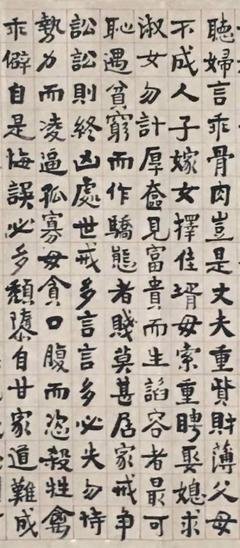 聽婦言乖骨肉豈是丈夫重貲財薄父母
不成人子嫁女擇佳壻毋索重聘娶媳求
淑女勿計厚奩見富貴而生諂容者最可
恥遇貧窮而作驕態者賤莫甚居家戒爭
訟訟則終凶處世戒多言言多必失勿恃
勢力而凌逼孤寡毋貪口腹而恣殺牲禽
乖僻自是悔誤必多頹隳自甘家道難成